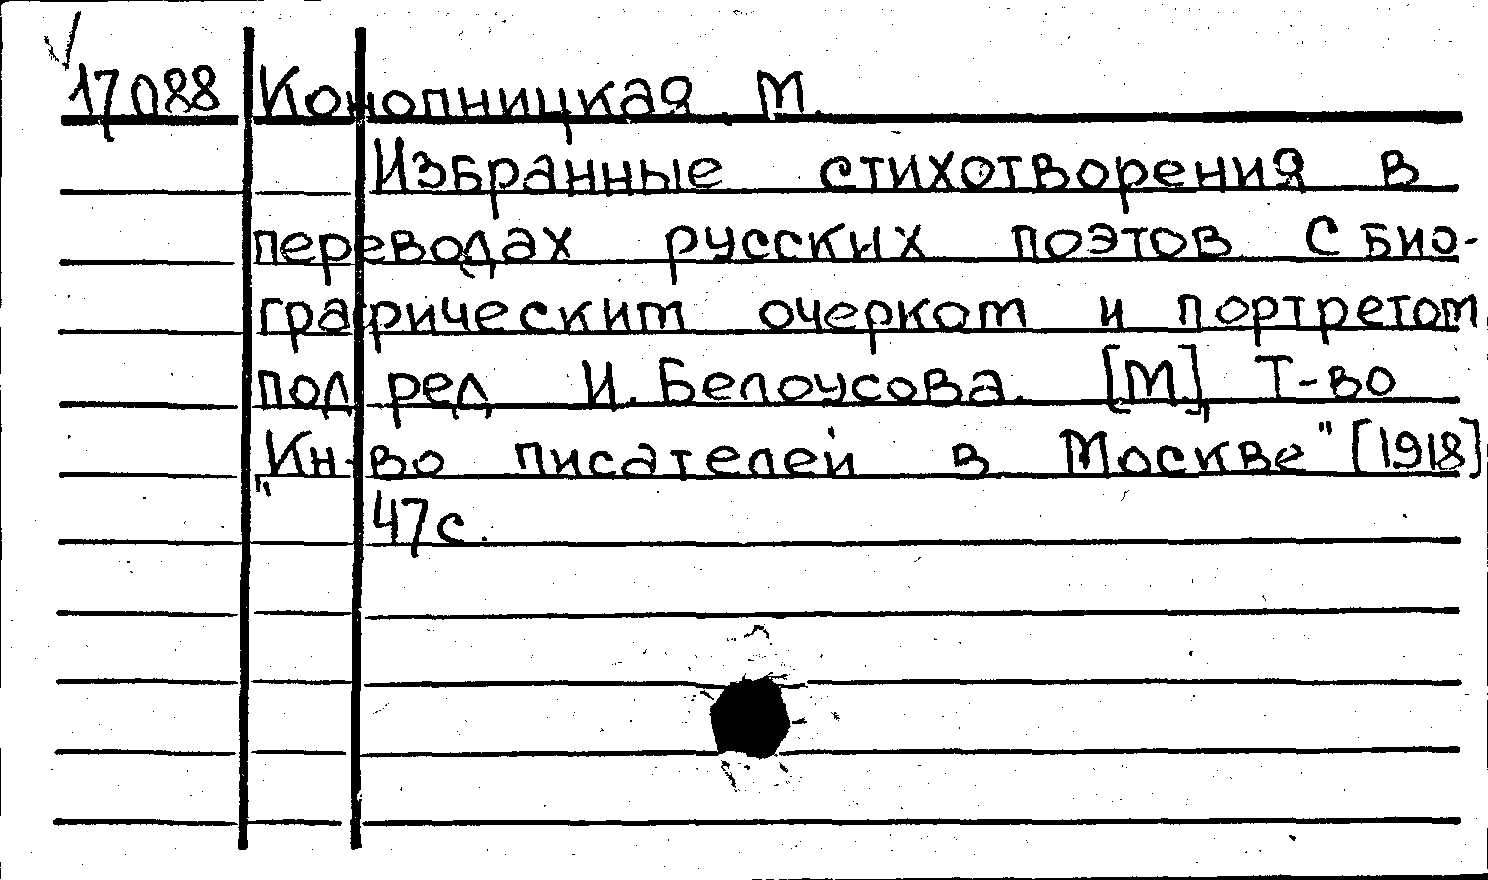 17088 Конопницкая М.
Избранные стихотворения в
переводах русских поэтов. С био-
графическим очерком и портретом
под ред И. Белоусова. [М], Т-во
"Кн-во писателей в Москве" [1918]
47 с.